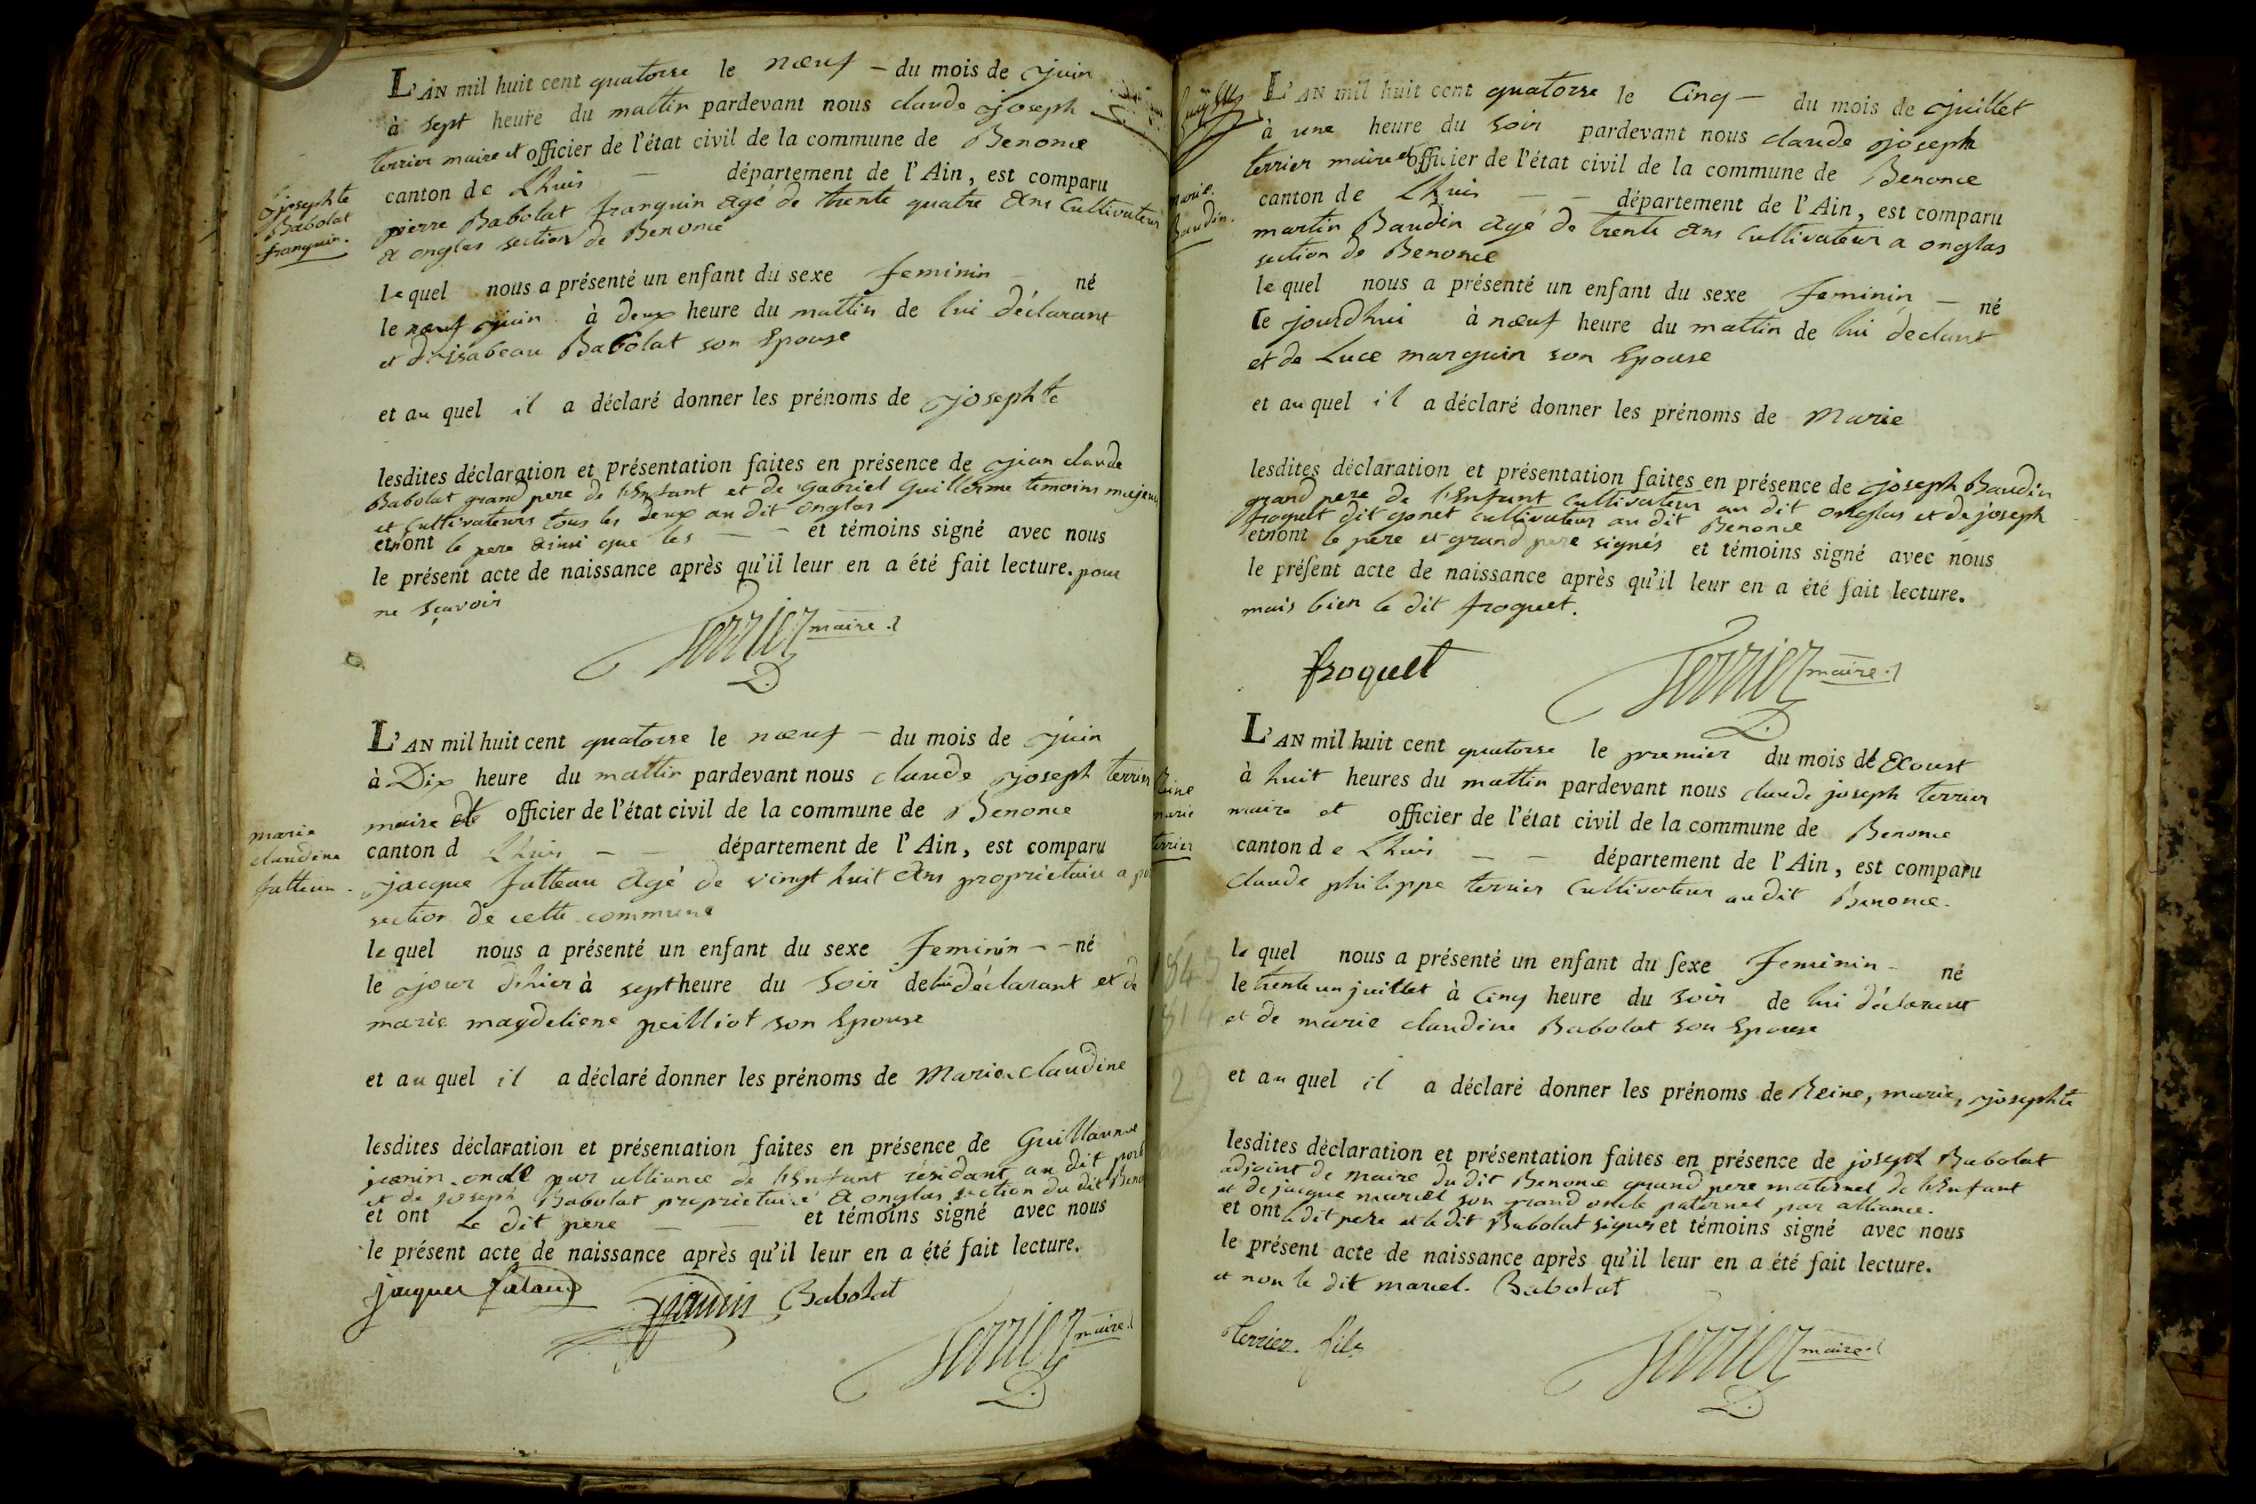 L'AN mil huit cent quatorse le nœuf — du mois de juin
à sept heure du mattin pardevant nous claude joseph
terrier maire et officier de l'état civil de la commune de Benonce
canton de Lhuis — département de l'Ain, est comparu
josephte
Babolat
franquin.
pierre Babolat franquin agé de trente quatre ans Cultivateur
a onglas section de Benonce
le quel nous a présenté un enfant du sexe feminin né
le nœuf juin à deux heure du mattin de lui déclarant
et d'isabeau Babolat son Epouse
et au quel il a déclaré donner les prénoms de josephte
lesdites déclaration et présentation faites en présence de jean claude
Babolat grand pere de l'Enfant et de Gabriel Guillerme temoins majeurs
et Cultivateurs tous les deux au dit onglas
et n'ont le pere ainsi que les — — et témoins signé avec nous
le présent acte de naissance après qu'il leur en a été fait lecture. pour
ne sçavoir
Terrier maire
L'AN mil huit cent quatorse le nœuf — du mois de juin
à Dix heure du mattin pardevant nous claude joseph terrier
maire et officier de l'état civil de la commune de Benonce
marie
claudine
canton d Lhuis — — département de l'Ain, est comparu
jacque futteau agé de vingt huit ans proprietaire a
section de cette commune
le quel nous a présenté un enfant du sexe feminin — — né
le jour d'hier à sept heure du soir de lui déclarant et de
marie magdeliene peilliot son Epouse
et au quel il a déclaré donner les prénoms de Marie claudine
lesdites déclaration et présentation faites en présence de Guillaume
janin oncle par alliance de l'Enfant residant au dit port
et de joseph Babolat proprietaire a onglas section du dit Benonce
et ont le dit pere — — et témoins signé avec nous
le présent acte de naissance après qu'il leur en a été fait lecture.
jacques futaud janin Babolat
Terrier maire
L'AN mil huit cent quatorse le Cinq — du mois de juillet
à une heure du soir pardevant nous claude joseph
terrier maire et officier de l'état civil de la commune de Benonce
marie
Baudin.
canton de Lhuis — — département de l'Ain, est comparu
martin Baudin agé de trente ans Cultivateur a onglas
section de Benonce
le quel nous a présenté un enfant du sexe feminin — né
le jourdhui à nœuf heure du mattin de lui declant
et de Luce marguin son Epouse
et au quel il a déclaré donner les prénoms de Marie
lesdites déclaration et présentation faites en présence de joseph Baudin
grand pere de l'Enfant Cultivateur au dit onglas et de joseph
froquet dit gonet cultivateur au dit Benonce
et n'ont le pere et grand pere signés et témoins signé avec nous
le présent acte de naissance après qu'il leur en a été fait lecture.
mais bien le dit froquet.
froquet Terrier maire
L'AN mil huit cent quatorse le premier du mois de Aoust
à huit heures du mattin pardevant nous claude joseph terrier
maire et officier de l'état civil de la commune de Benonce
Reine
marie
terrier
canton de Lhuis — — département de l'Ain, est comparu
claude philippe terrier Cultivateur au dit Benonce.
le quel nous a présenté un enfant du sexe feminin — né
le trente un juillet à Cinq heure du soir de lui déclarant
et de marie claudine Babolat son Epouse
et au quel il a déclaré donner les prénoms de Reine, marie, josephte
lesdites déclaration et présentation faites en présence de joseph Babolat
adjoint de maire du dit Benonce grand pere maternel de l'Enfant
et de jacque maruel son grand oncle paternel par alliance.
et ont le dit pere et le dit Babolat signés et témoins signé avec nous
le présent acte de naissance après qu'il leur en a été fait lecture.
et non le dit maruel. Babolat
terrier fils Terrier maire